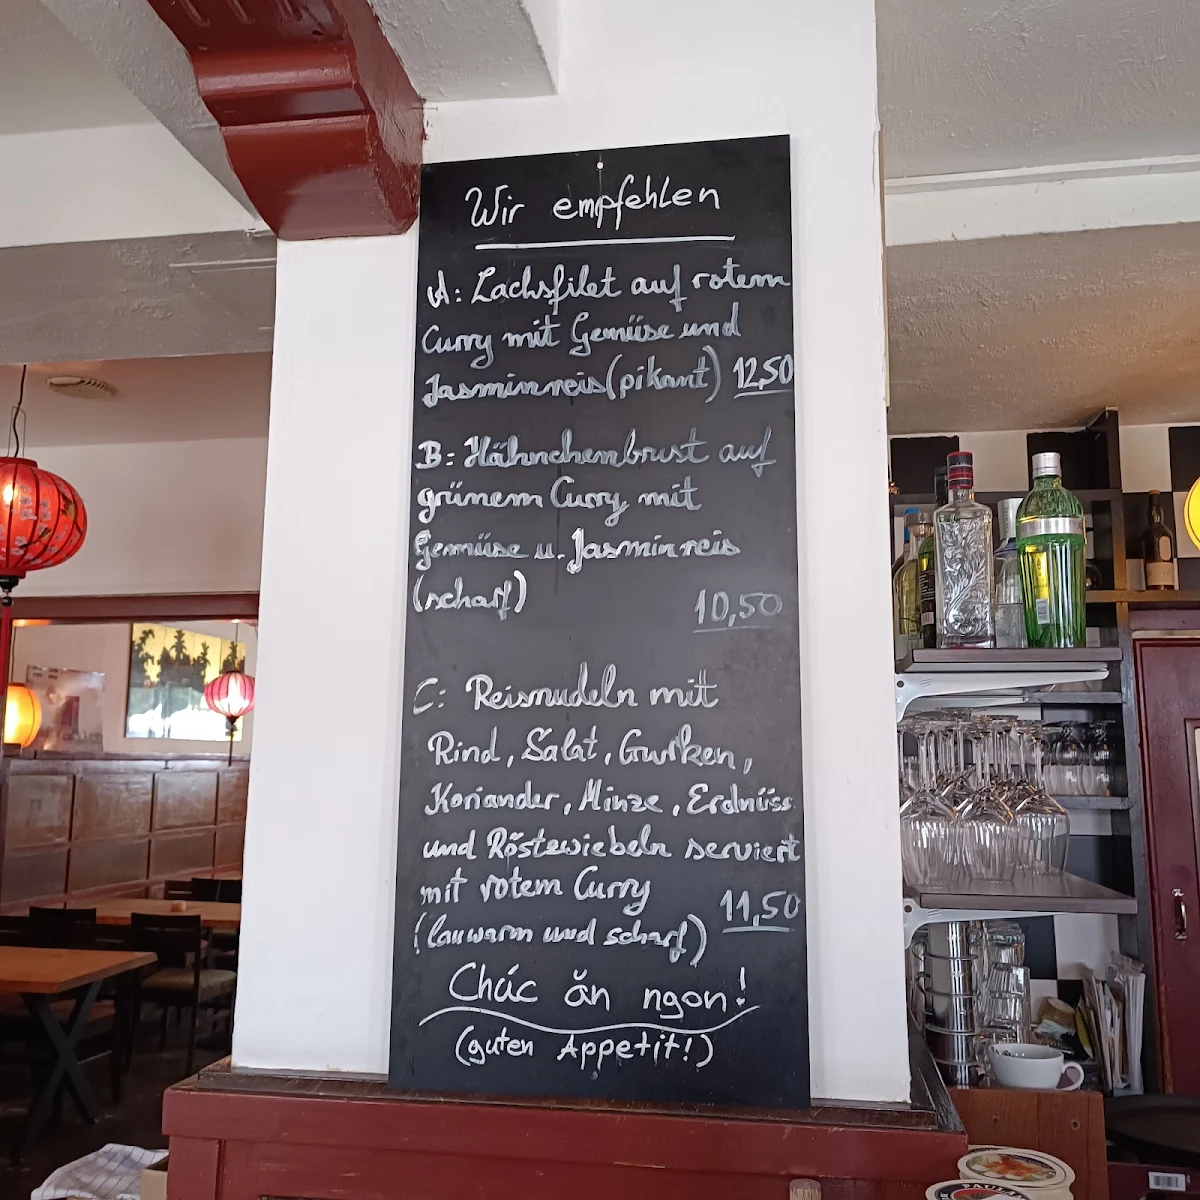 Wir empfehlen
A: Lachsfilet auf rotem
Curry mit Gemüse und
Jasminreis (pikant) 12,50
B: Hähnchenbrust auf
grünem Curry mit
Gemüse u. Jasminreis
(scharf) 10,50
C: Reisnudeln mit
Rind, Salat, Gurken,
Koriander, Minze, Erdnüss
und Röstzwiebeln serviert
mit rotem Curry 11,50
(lauwarm und scharf)
Chúc ăn ngon!
(guten Appetit!)